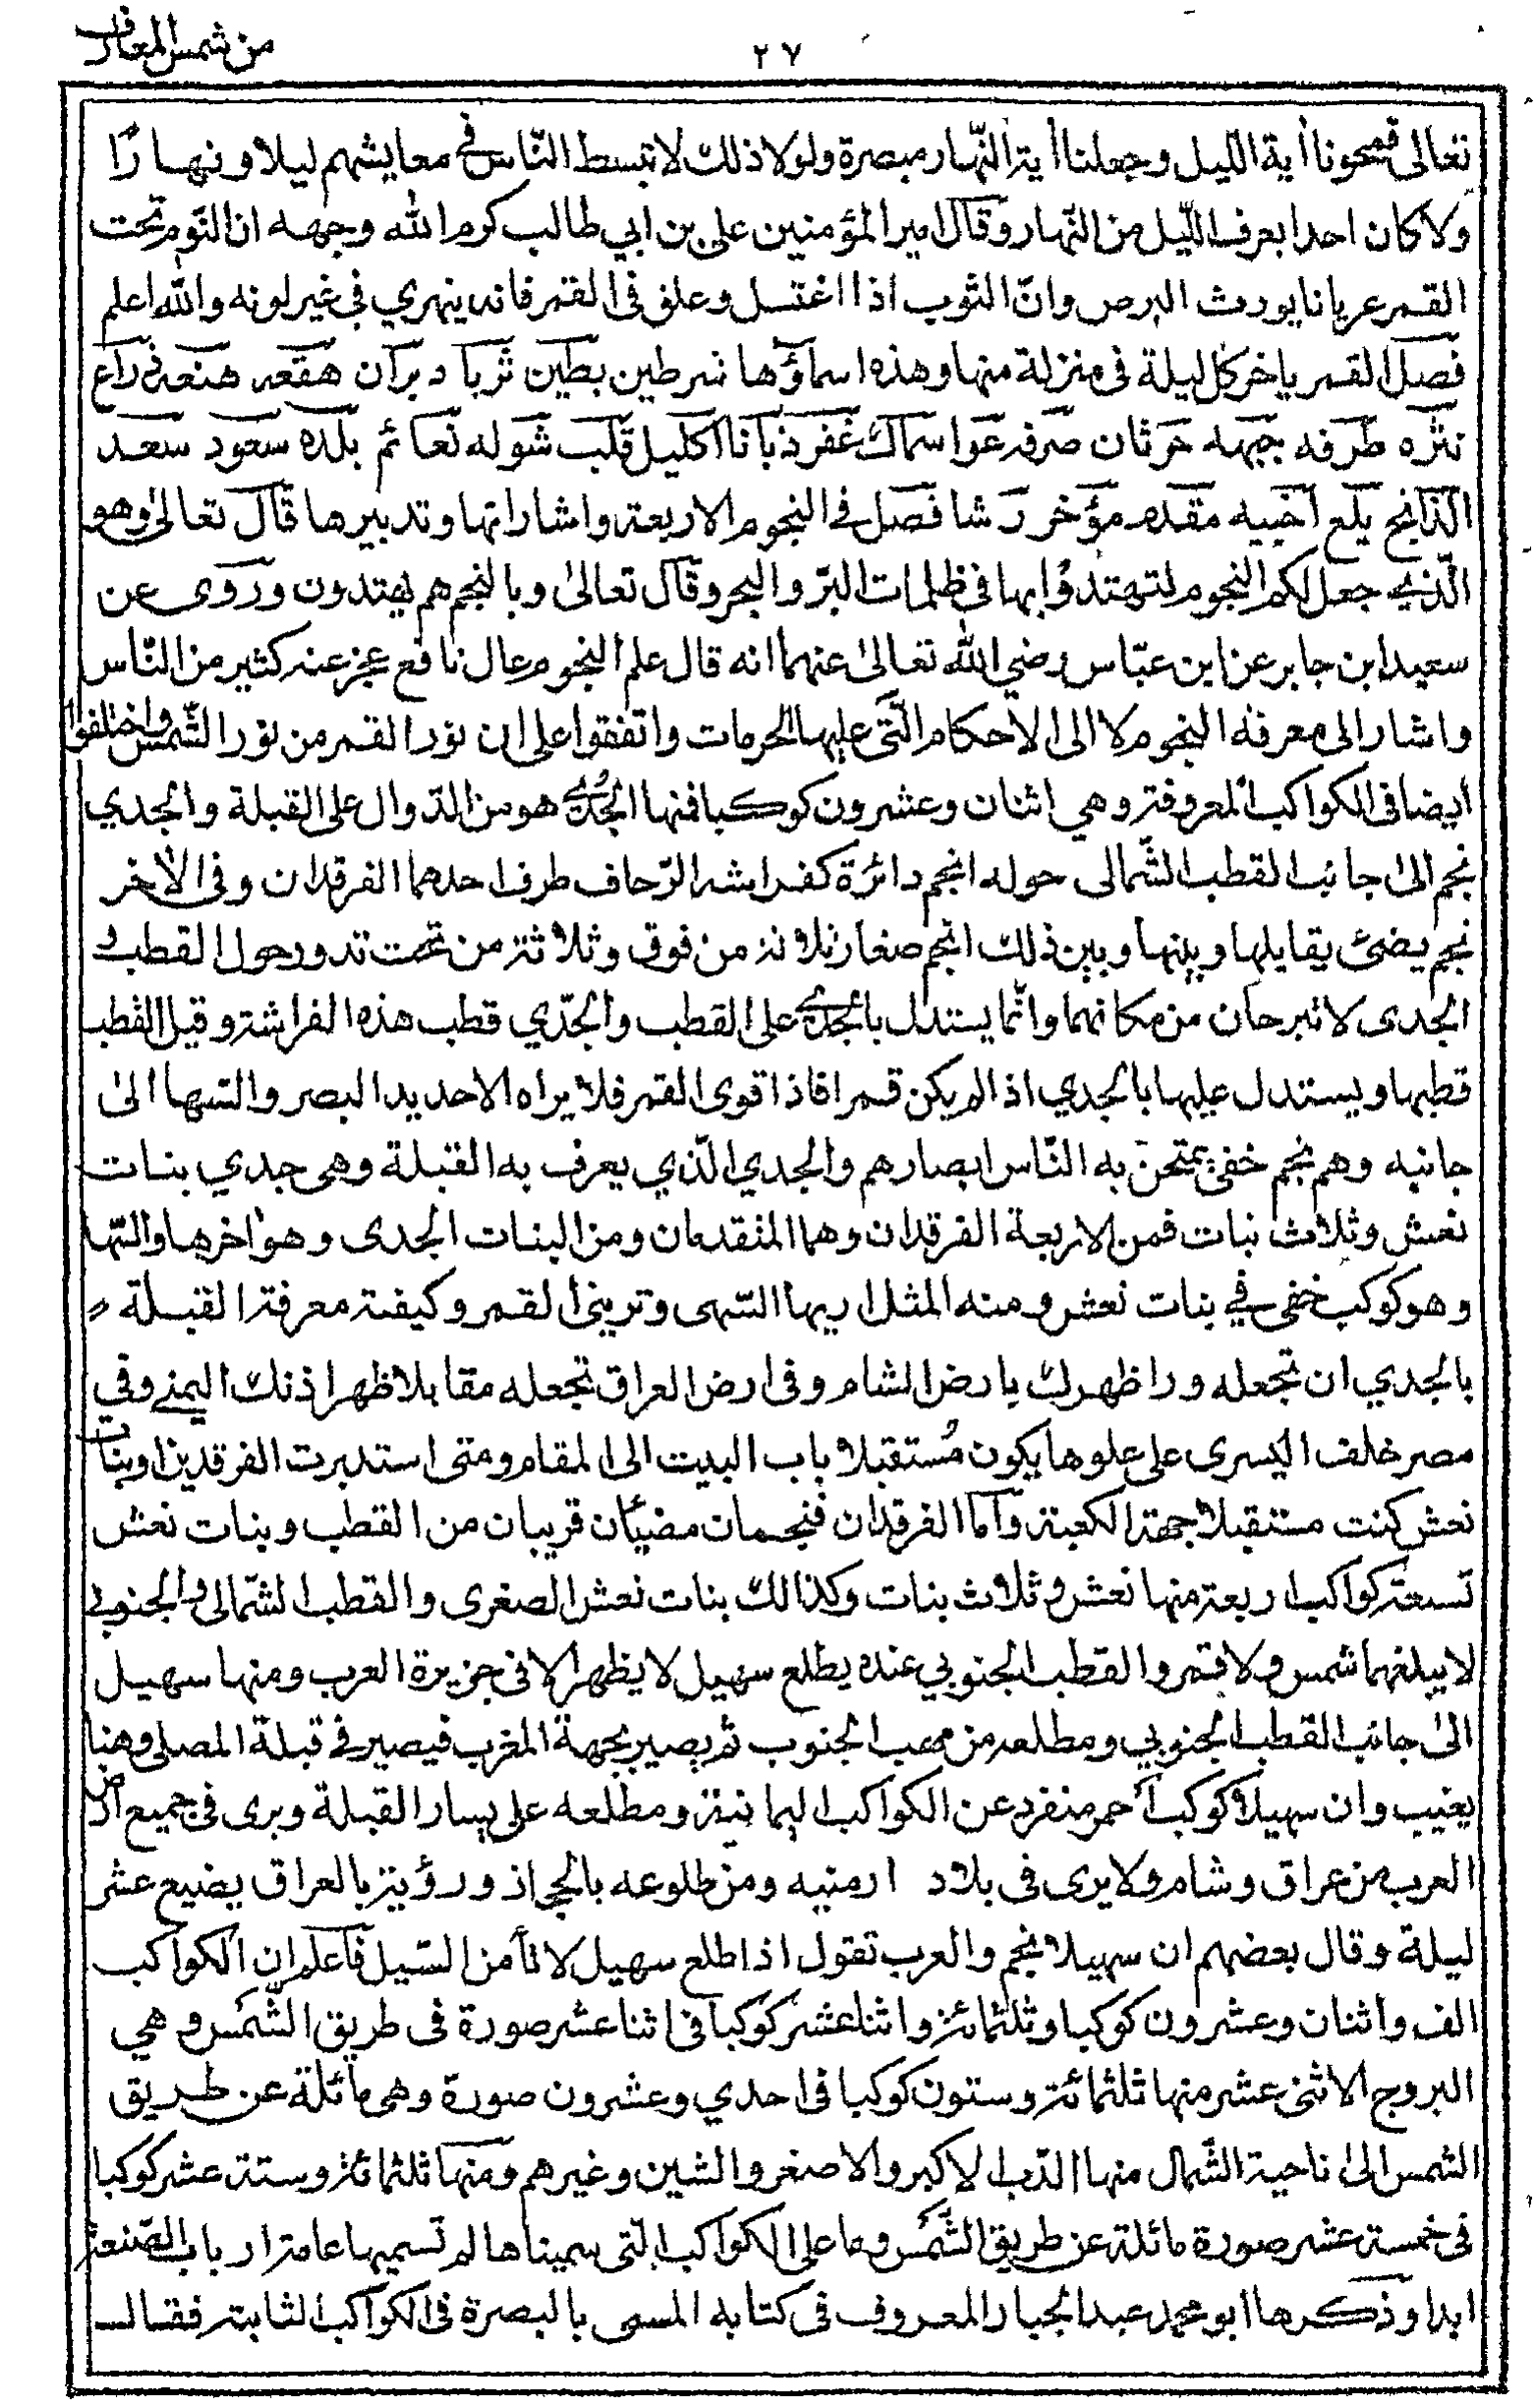 من شمس المعارف
٢٧
تعالى فمحونا أية الليل وجعلنا أية النّهار مبصرة ولولا ذلك لا تبسط النّاس في معايشهم ليلا ونهارًا
ولا كان احدا يعرف اللّيل من النّهار وقال امير المؤمنين على بن ابي طالب كرم الله وجهه ان النّوم تحت
القمر عريانا يورث البرص وانّ الثوب اذا اغتسل وعلق فى القمر فانه ينهري في غير لونه والله اعلم
فصل القمر ياخر كل ليلة فى منزلة منها وهذه اسماؤها شرطين بطين ثريا دبران هقعه هنعه ذراع
نثره طرفه جبهه خرثان صرفه عوا سماك غفر ذبانا اكليل قلب شوله نعائم بلده سعود سعد
الذابح بلع اخبيه مقدم مؤخر رشا فصل فى النجوم الاربعة واشاراتها وتدبيرها قال تعالىٰ وهو
الّذي جعل لكم النجوم لتهتدوا بها فى ظلمات البرّ والبحر وقال تعالىٰ وبالنجم هم يهتدون وروى عن
سعيد ابن جابر عن ابن عبّاس رضي الله تعالىٰ عنهما انه قال علم النجوم عال نافع عجز عنه كثير من النّاس
واشار الى معرفه النجوم لا الى الاحكام الّتى عليها الحرمات واتفقوا على ان نور القمر من نور الشّمس واختلفوا
ايضا فى الكواكب المعروفة وهي اثنان وعشرون كوكبا فمنها الجُدي هو من الدّوال على القبلة والجدي
نجم الىٰ جانب القطب الشّمالى حوله انجم دائرة كفراشة الرّحاف طرف احدهما الفرقدان وفى الاٰخر
نجم يضئ يقابلها وبينها وبين ذلك انجم صغار ثلاثة من فوق وثلاثة من تحت تدور حول القطب و
الجدى لا تبرحان من مكانهما وانّما يستدل بالجدي على القطب والجدّي قطب هذه الفراشة وقيل القطب
قطبها ويستدل عليها بالجدي اذ لم يكن قمرا فاذا قوى القمر فلا يراه الا حديد البصر والسّها الىٰ
جانبه وهم نجم خفى يمتحن به النّاس ابصارهم والجدي الّذي يعرف به القبلة وهى جدي بنات
نعش وثلاث بنات فمن الاربعة الفرقدان وهما المتقدمان ومن البنات الجدى وهو اخرها والسّها
وهو كوكب خفى في بنات نعش ومنه المثل اريها السّهى وترينى القمر وكيفة معرفة القبلة
بالجدي ان تجعله ورا ظهرك بارض الشام وفى ارض العراق تجعله مقابلا ظهر اذنك اليمنى وفى
مصر خلف اليسرى على علوها يكون مُستقبلا باب البيت الى المقام ومتى استدبرت الفرقدين او بنات
نعش كنت مستقبلا جهة الكعبة وامّا الفرقدان فنجمان مضيئان قريبان من القطب وبنات نعش
تسعة كواكب اربعة منها نعش وثلاث بنات وكذالك بنات نعش الصغرى والقطب الشمالى والجنوبى
لا يبلغهما شمس ولا قمر والقطب الجنوبي عنده يطلع سهيل لا يظهر الا فى جزيرة العرب ومنها سهيل
الىٰ جانب القطب الجنوبي ومطلعه من مهب الجنوب ثم يصير بجهة المغرب فيصير في قبلة المصلى وهنا
يغيب وان سهيلا كوكب احمر منفرد عن الكواكب اليمانية ومطلعه على يسار القبلة ويرى فى جميع ارض
العرب من عراق وشام ولا يرى فى بلاد ارمنيه ومن طلوعه بالحجاز ورؤيته بالعراق بضيع عشر
ليلة وقال بعضهم ان سهيلا نجم والعرب تقول اذا طلع سهيل لا تأمن السّيل فاعلم ان الكواكب
الف واثنان وعشرون كوكبا وثلثمائة واثنا عشر كوكبا فى اثنا عشر صورة فى طريق الشّمس وهي
البروج الاثنى عشر منها ثلثمائة وستون كوكبا فى احدي وعشرون صورة وهى مائلة عن طريق
الشمس الىٰ ناحية الشّمال منها الدّب الاكبر والاصغر والشين وغيرهم ومنها ثلثمائة وستة عشر كوكبا
فى خمسة عشر صورة مائلة عن طريق الشّمس وما على الكواكب الّتى سميناها لم تسميها عامة ارباب الصّنعة
ابدا وذكرها ابو محمد عبد الجبار المعروف فى كتابه المسمى بالبصرة فى الكواكب الثابتة فقال